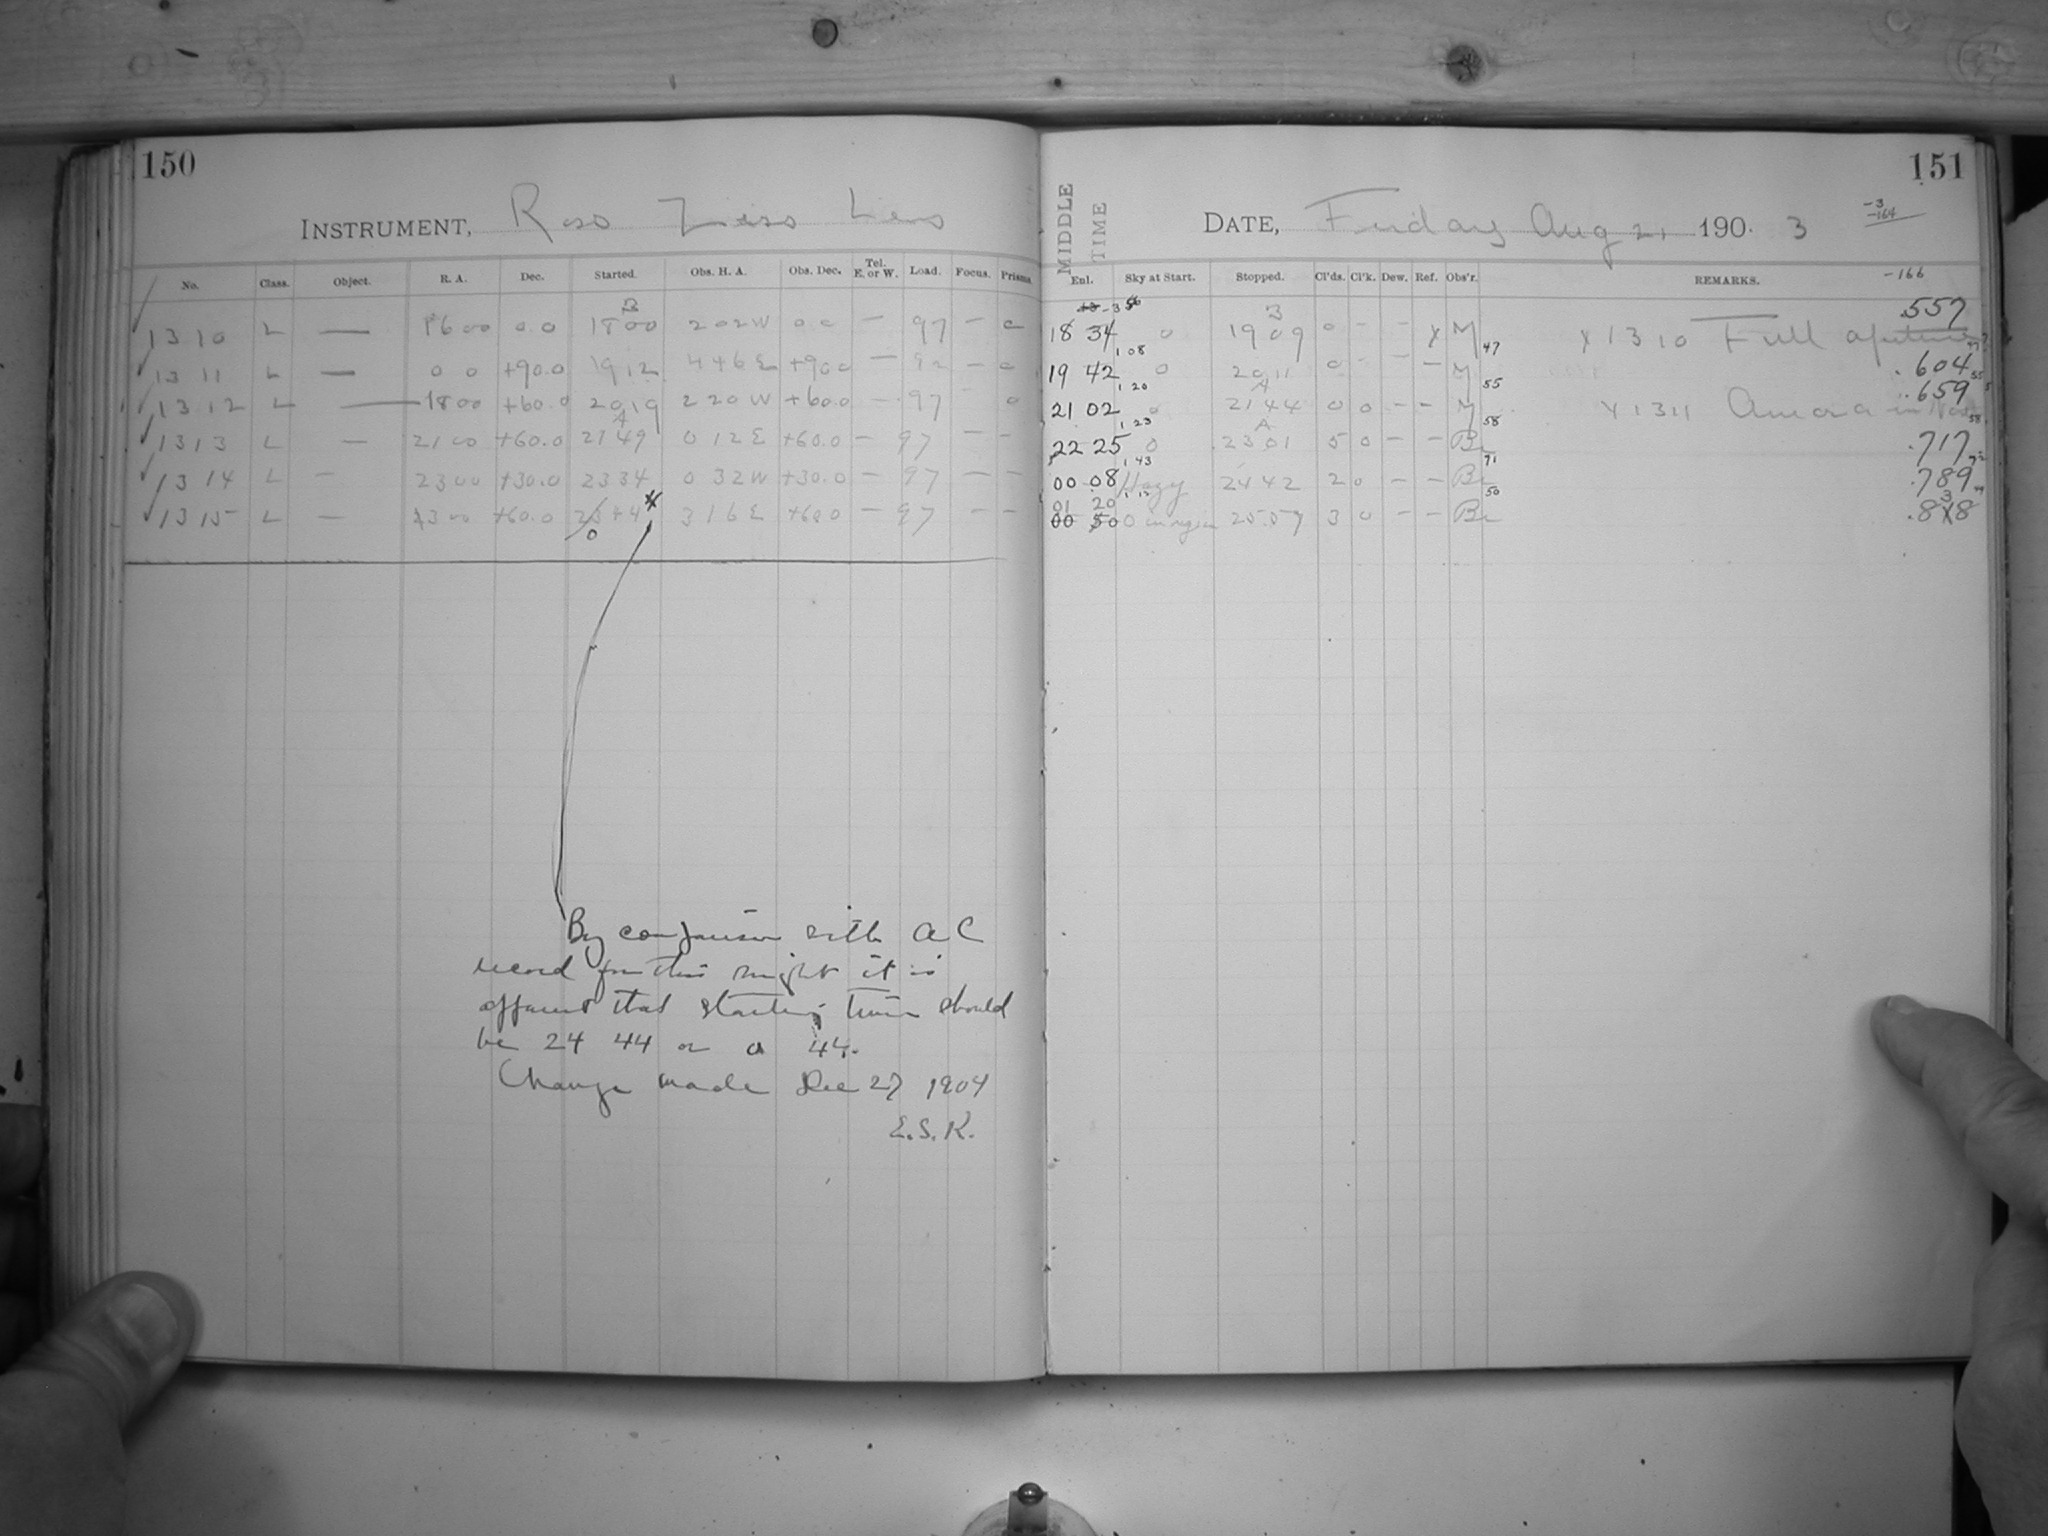 150
INSTRUMENT, Ross Zeiss Lens
No. Class. Object. R. A. Dec. Started. Obs. H. A. Obs. Dec. Tel. E. or W. Load. Focus. Prisms.
1310 L — 1600 0.0 1800 202W 0.0 — 97 — 0
1311 L — 0 0 +90.0 1912 446E +90.0 — 92 — 0
1312 L — 1800 +60.0 2019 220W +60.0 — 97 0
1313 L — 2100 +60.0 2149 012E +60.0 — 97 — —
1314 L — 2300 +30.0 2334 032W +30.0 — 97 — —
1315 L — +60.0 316E +60.0 — 97 — —
By comparison with AC
record for this night it is
apparent that starting time should
be 24 44 or 0 44.
Change made Dec 27 1904
E.S.K.
151
MIDDLE TIME
DATE, Friday Aug 21 1903
-3
-164
Enl. Sky at Start. Stopped. Cl'ds. Cl'k. Dew. Ref. Obs'r. REMARKS. -166
18 34 0 1909 0 - - x M x 1310 Full aperture .557
1 08 47
19 42 0 2011 0 - - - M .604
1 20 55
21 02 0 2144 0 0 - - M x 1311 .659
1 23 58
22 25 0 2301 5 0 - - Br .717
1 43 71
00 08 Hazy 2442 2 0 - - Br .789
50
01 20
00 50 2507 3 0 - - Br .838